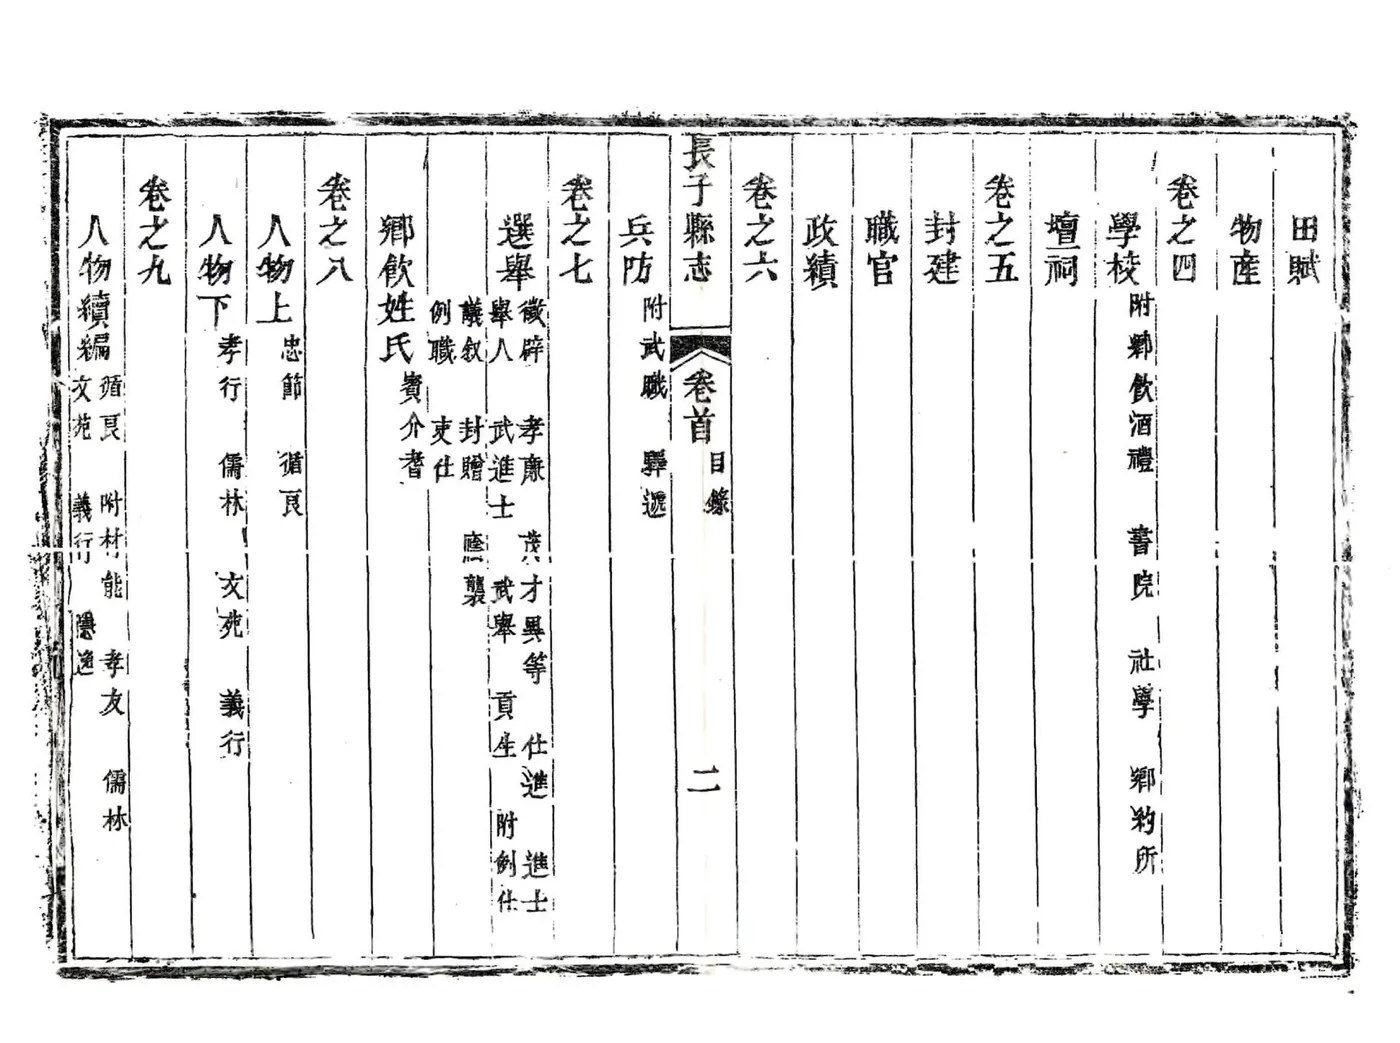 田賦
物產
卷之四
學校 附鄉飲酒禮 書院 社學 鄉約所
壇祠
卷之五
封建
職官
政績
卷之六
長子縣志 卷首 目錄 二
兵防 附武職 驛遞
卷之七
選舉 徵辟 孝廉 茂才異等 仕進 進士
舉人 武進士 武舉 貢生 附例仕
議叙 封贈 廕襲
例職 吏仕
鄉飲姓氏 賓介耆
卷之八
人物上 忠節 循良
人物下 孝行 儒林 文苑 義行
卷之九
人物續編 循良 附材能 孝友 儒林
文苑 義行 隱逸